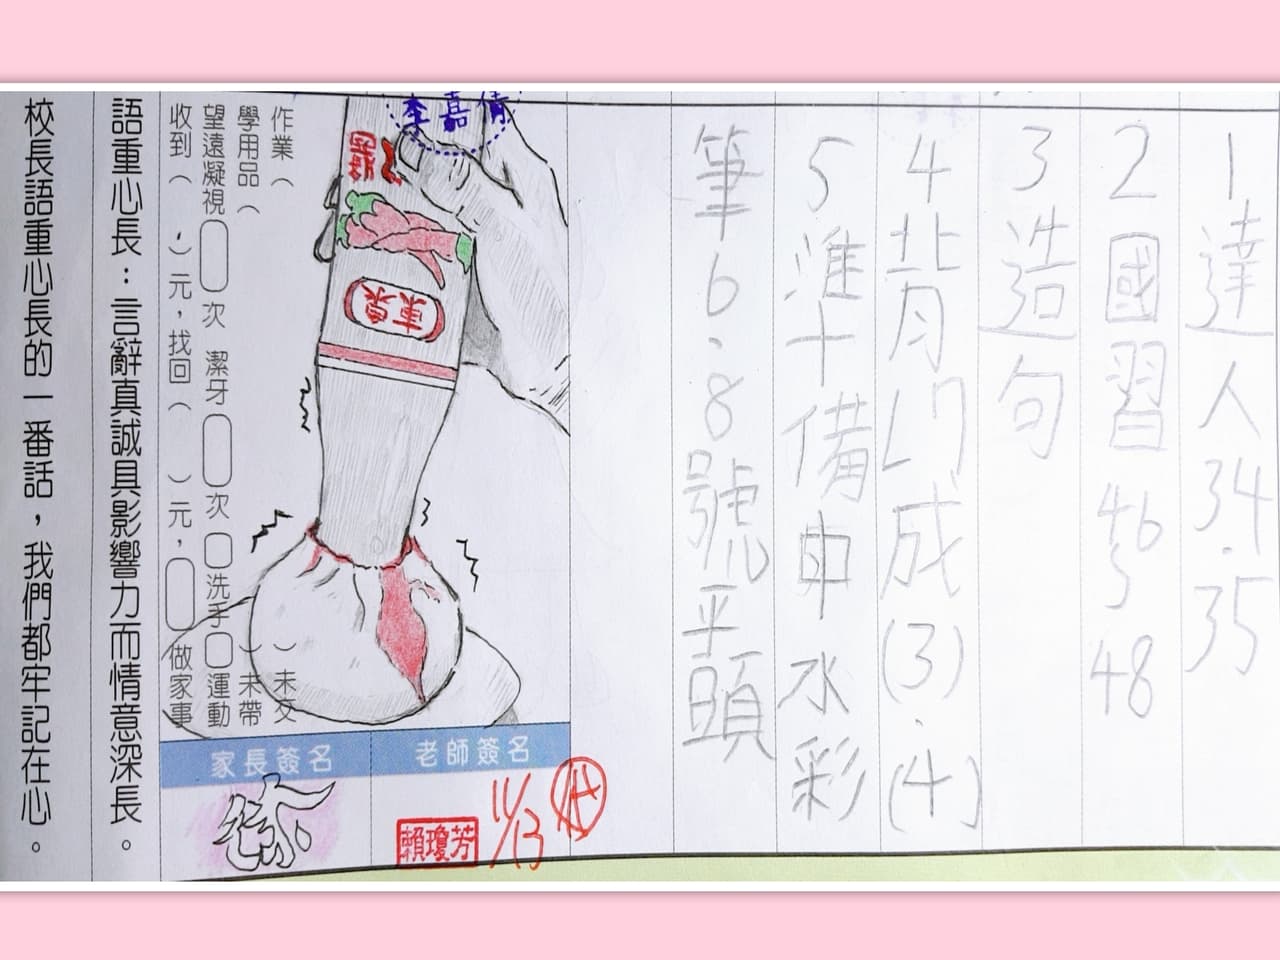 1達人34.35
2國習46 5 48
3造句
4背門成(3).(4)
5準十備申水彩
筆6.8號平頭
李嘉倩
東泉
作業( )未交
學用品( )未帶
望遠凝視 次 潔牙 次 洗手 運動
收到( , )元,找回( )元, 做家事
家長簽名
老師簽名
賴瓊芳
11/13
語重心長:言辭真誠具影響力而情意深長。
校長語重心長的一番話,我們都牢記在心。